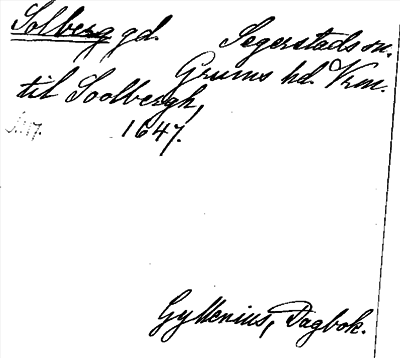 Solberg gd. Segerstads sn.
Grums hd. Vrm.
til Soolbergh,
1647.
Gyllenius, Dagbok.